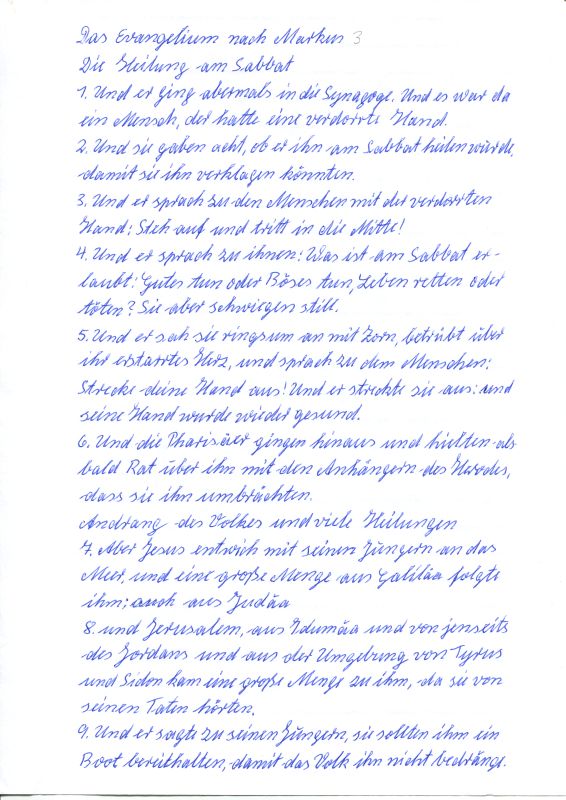 Das Evangelium nach Markus 3
Die Heilung am Sabbat
1. Und er ging abermals in die Synagoge. Und es war da
ein Mensch, der hatte eine verdorrte Hand.
2. Und sie gaben acht, ob er ihn am Sabbat heilen würde,
damit sie ihn verklagen könnten.
3. Und er sprach zu den Menschen mit der verdorrten
Hand: Steh auf und tritt in die Mitte!
4. Und er sprach zu ihnen: Was ist am Sabbat er-
laubt: Gutes tun oder Böses tun, Leben retten oder
töten? Sie aber schwiegen still.
5. Und er sah sie ringsum an mit Zorn, betrübt über
ihr erstarrtes Herz, und sprach zu dem Menschen:
Strecke deine Hand aus! Und er streckte sie aus: und
seine Hand wurde wieder gesund.
6. Und die Pharisäer gingen hinaus und hielten als
bald Rat über ihn mit den Anhängern des Herodes,
dass sie ihn umbrächten.
Andrang des Volkes und viele Heilungen
7. Aber Jesus entwich mit seinen Jüngern an das
Meer, und eine große Menge aus Galiläa folgte
ihm; auch aus Judäa
8. und Jerusalem, aus Idumäa und von jenseits
des Jordans und aus der Umgebung von Tyrus
und Sidon kam eine große Menge zu ihm, da sie von
seinen Taten hörten.
9. Und er sagte zu seinen Jüngern, sie sollten ihm ein
Boot bereithalten, damit das Volk ihn nicht bedränge.